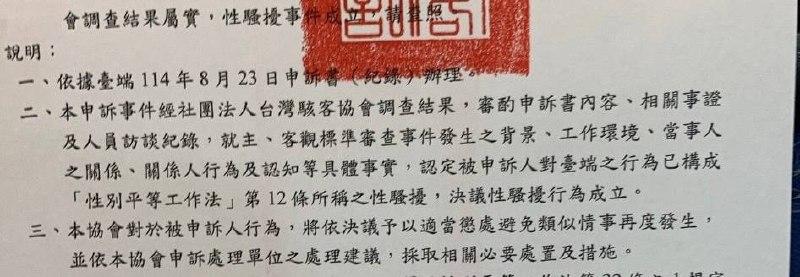 會調查結果屬實，性騷擾事件成立，請查照
說明：
一、依據臺端 114 年 8 月 23 日申訴書（紀錄）辦理。
二、本申訴事件經社團法人台灣駭客協會調查結果，審酌申訴書內容、相關事證
及人員訪談紀錄，就主、客觀標準審查事件發生之背景、工作環境、當事人
之關係、關係人行為及認知等具體事實，認定被申訴人對臺端之行為已構成
「性別平等工作法」第 12 條所稱之性騷擾，決議性騷擾行為成立。
三、本協會對於被申訴人行為，將依決議予以適當懲處避免類似情事再度發生，
並依本協會申訴處理單位之處理建議，採取相關必要處置及措施。